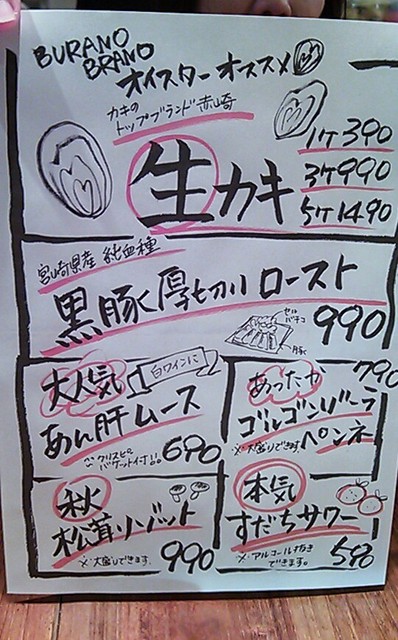 BURANO
BRANO
オイスターオススメ
カキの
トップブランド赤崎
生カキ
1ケ390
3ケ990
5ケ1490
宮崎県産 純血種
黒豚厚切りロースト
990
豚
大人気
白ワインに
あん肝ムース
クリスピー
バゲット付!!
690
あったか
790
ゴルゴンゾーラ
ペンネ
※大盛りできます。
秋
松茸リゾット
※大盛りできます。
990
本気
すだちサワー
※アルコール抜き
できます。
590